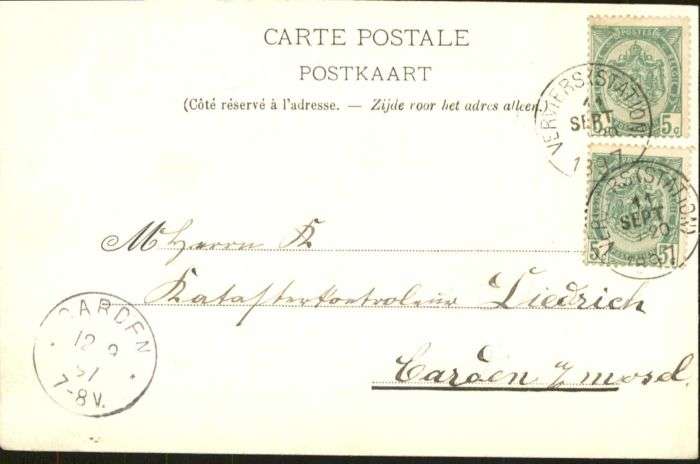 CARTE POSTALE
POSTKAART
(Côté réservé à l'adresse. — Zijde voor het adres alleen.)
POSTES
5c
VERVIERS (STATION)
11
SEPT
1897
5
VERVIERS (STATION)
11
SEPT
1897
Herrn K
Katasterkontroleur Diedrich
Carden a/mosel
CARDEN
12 9
97
7-8 V.